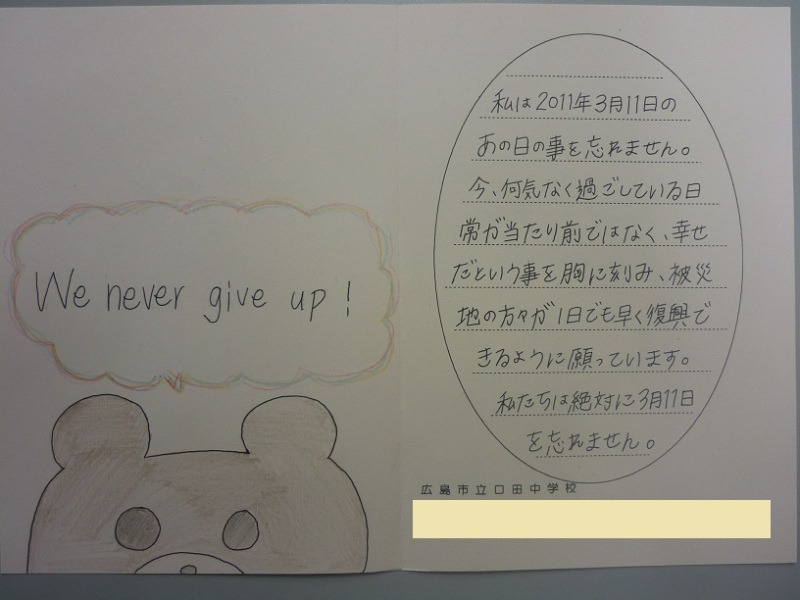 We never give up!
私は2011年3月11日の
あの日の事を忘れません。
今、何気なく過ごしている日
常が当たり前ではなく、幸せ
だという事を胸に刻み、被災
地の方々が1日でも早く復興で
きるように願っています。
私たちは絶対に3月11日
を忘れません。
広島市立口田中学校